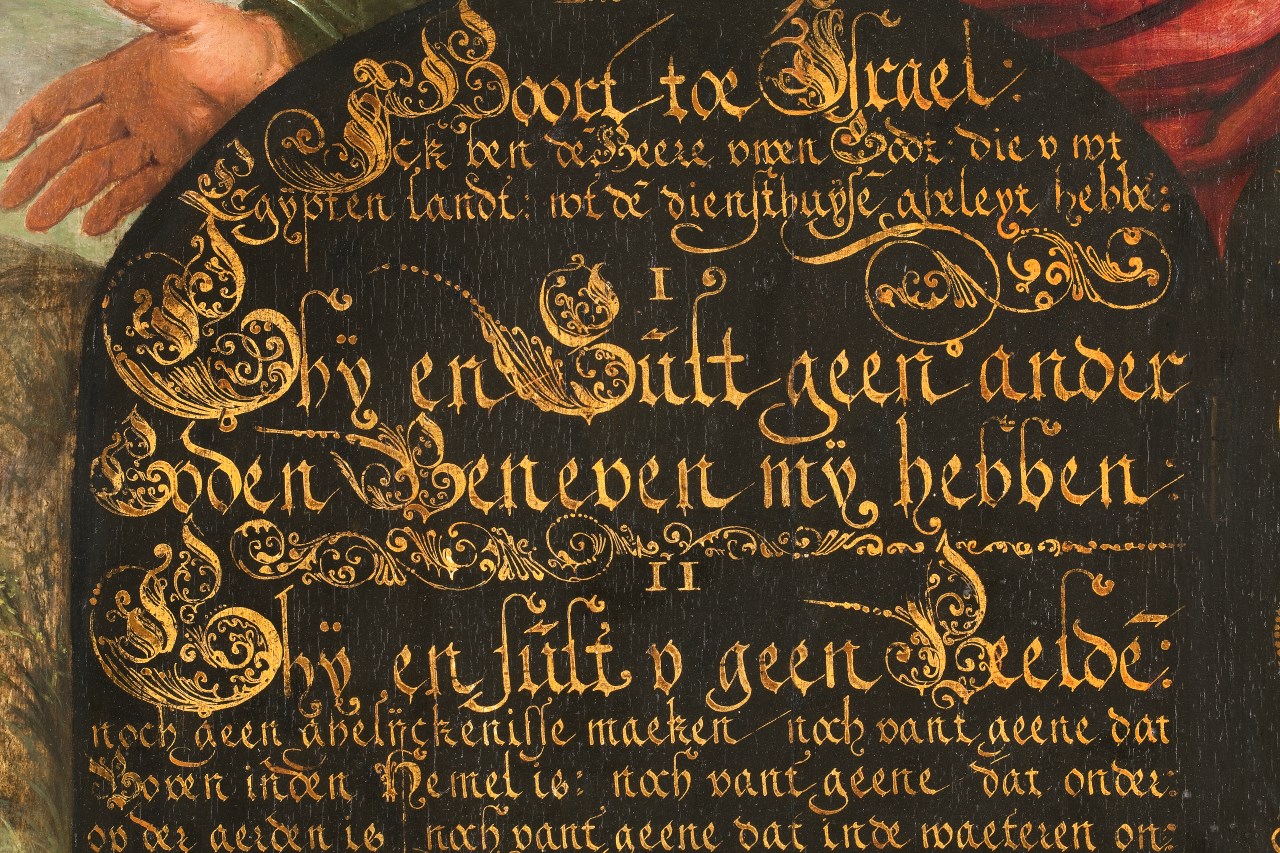 Hoort toe Israel:
Ick ben dē Heere uwen Godt: die v wt
Egÿpten landt: wt dē diensthuÿsē gheleyt hebbe:
I
Ghÿ en Sult geen ander
Goden Beneven mÿ hebben:
II
Ghÿ en sult v geen Beeldē:
noch geen ghelÿckenisse maeken noch vant geene dat
Boven inden Hemel is: noch vant geene dat onder:
op der aerden is noch vant geene dat inde waeteren on: